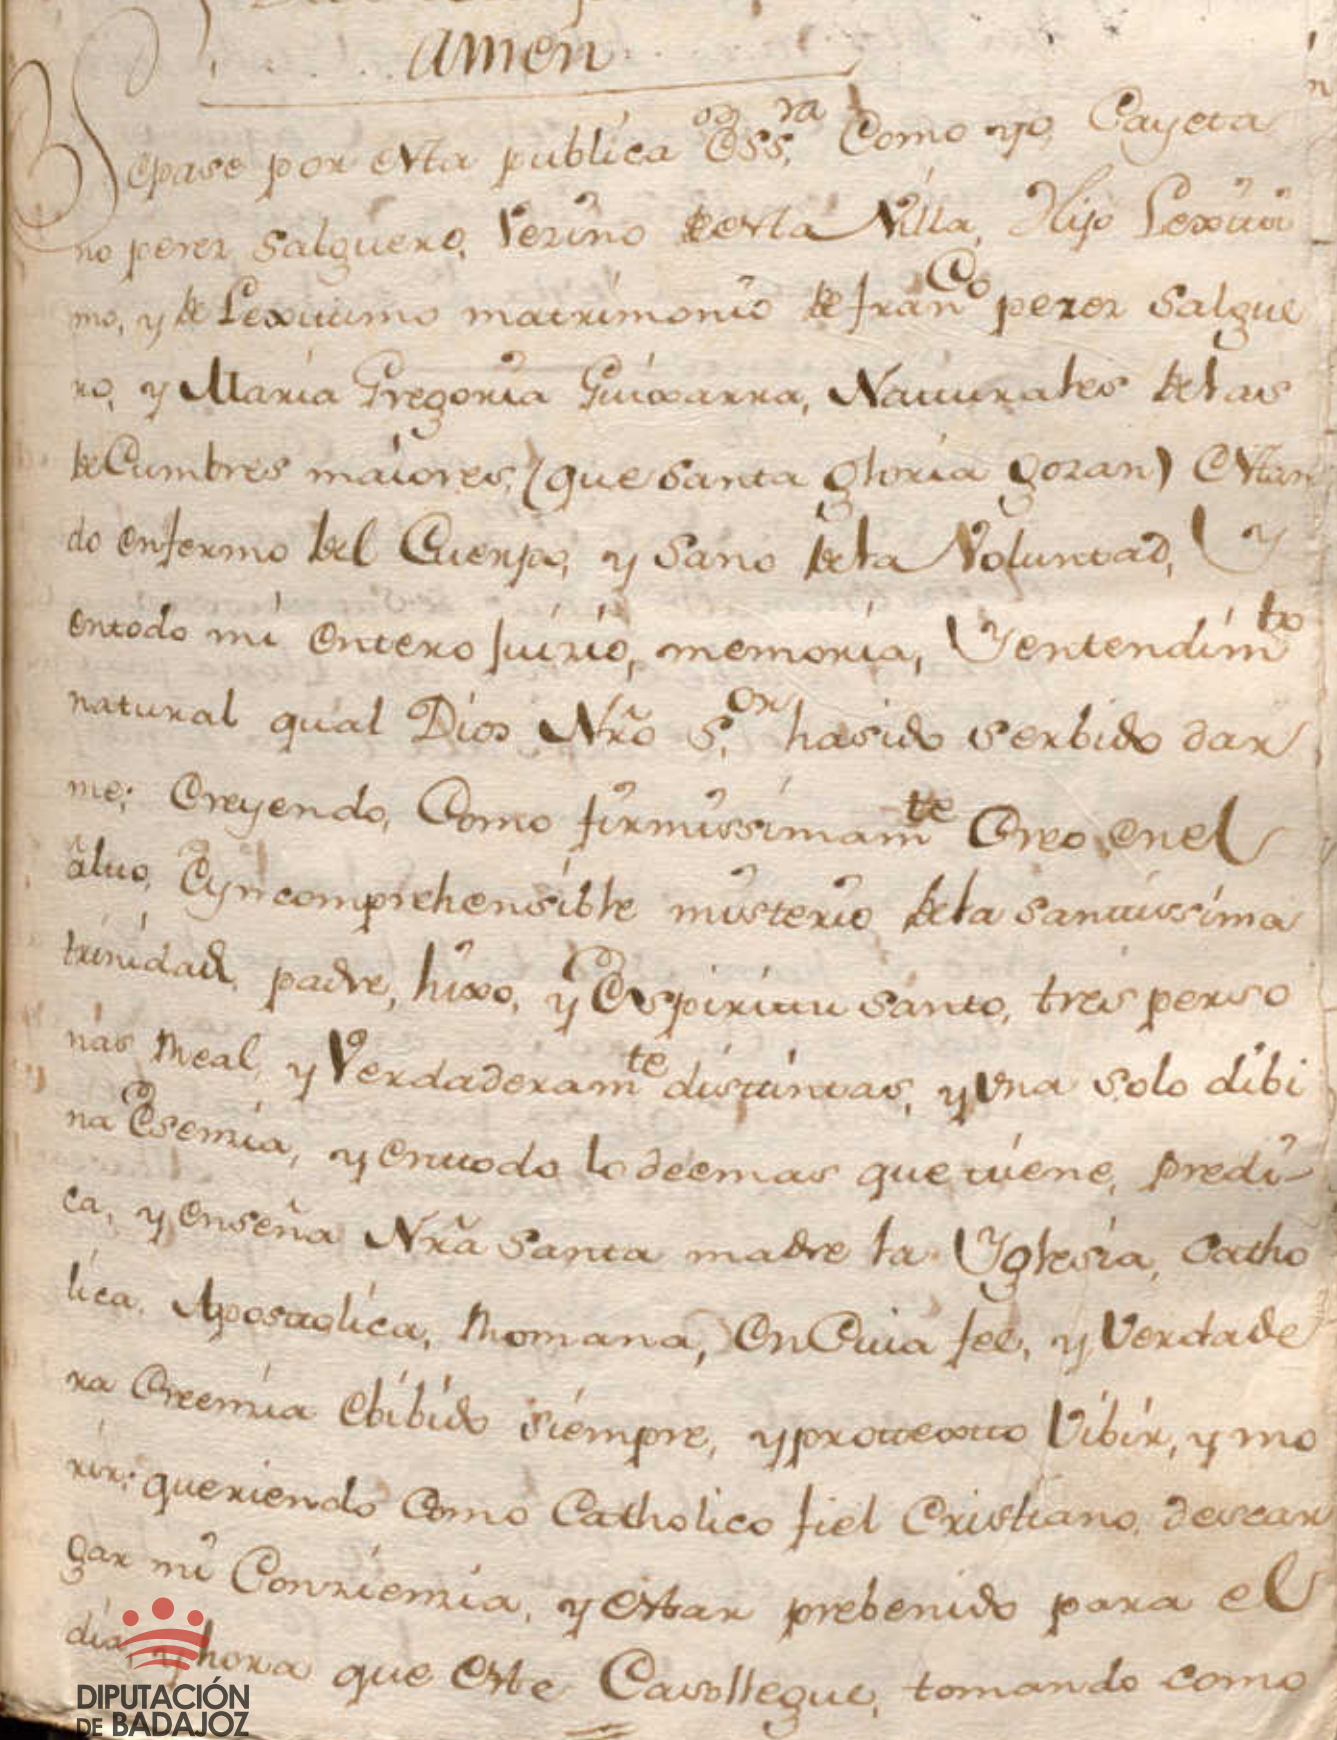 amen
Sepase por esta publica Ess.ra Como yo, Cayeta
no perez salguero, Vezino de esta Villa, Hijo Lexiti
mo, y de Lexitimo matrimonio de fran.co perez salgue
ro, y Maria Gregoria Guixarra, Naturales de las
de Cumbres maiores, (que santa gloria gozan) Estan
do enfermo del Cuerpo, y sano de la Voluntad, y
entodo mi entero Juizio, memoria, Yentendim.to
natural qual Dios Nrõ S.or hasido serbido dar
me; Creyendo, Como firmissimam.te Creo, enel
alto, Eyncomprehensible misterio de la santissima
trinidad, padre, hixo, y Espiritu santo, tres perso
nas Real, y Verdaderam.te distintas, y Vna solo dibi
na Esemzia, y entodo lo deemas que tiene, predi-
ca, y enseña Nrã santa madre la Yglesia, Catho
lica, Apostolica, Romana, En Cuia fee, y Verdade
ra Creemzia ebibido siempre, y protexto Vibir, y mo
rir: queriendo Como Catholico fiel Cristiano, descar
gar mi Conziemzia, y estar prebenido para el
dia, y hora que este Casollegue, tomando como
DIPUTACIÓN
DE BADAJOZ